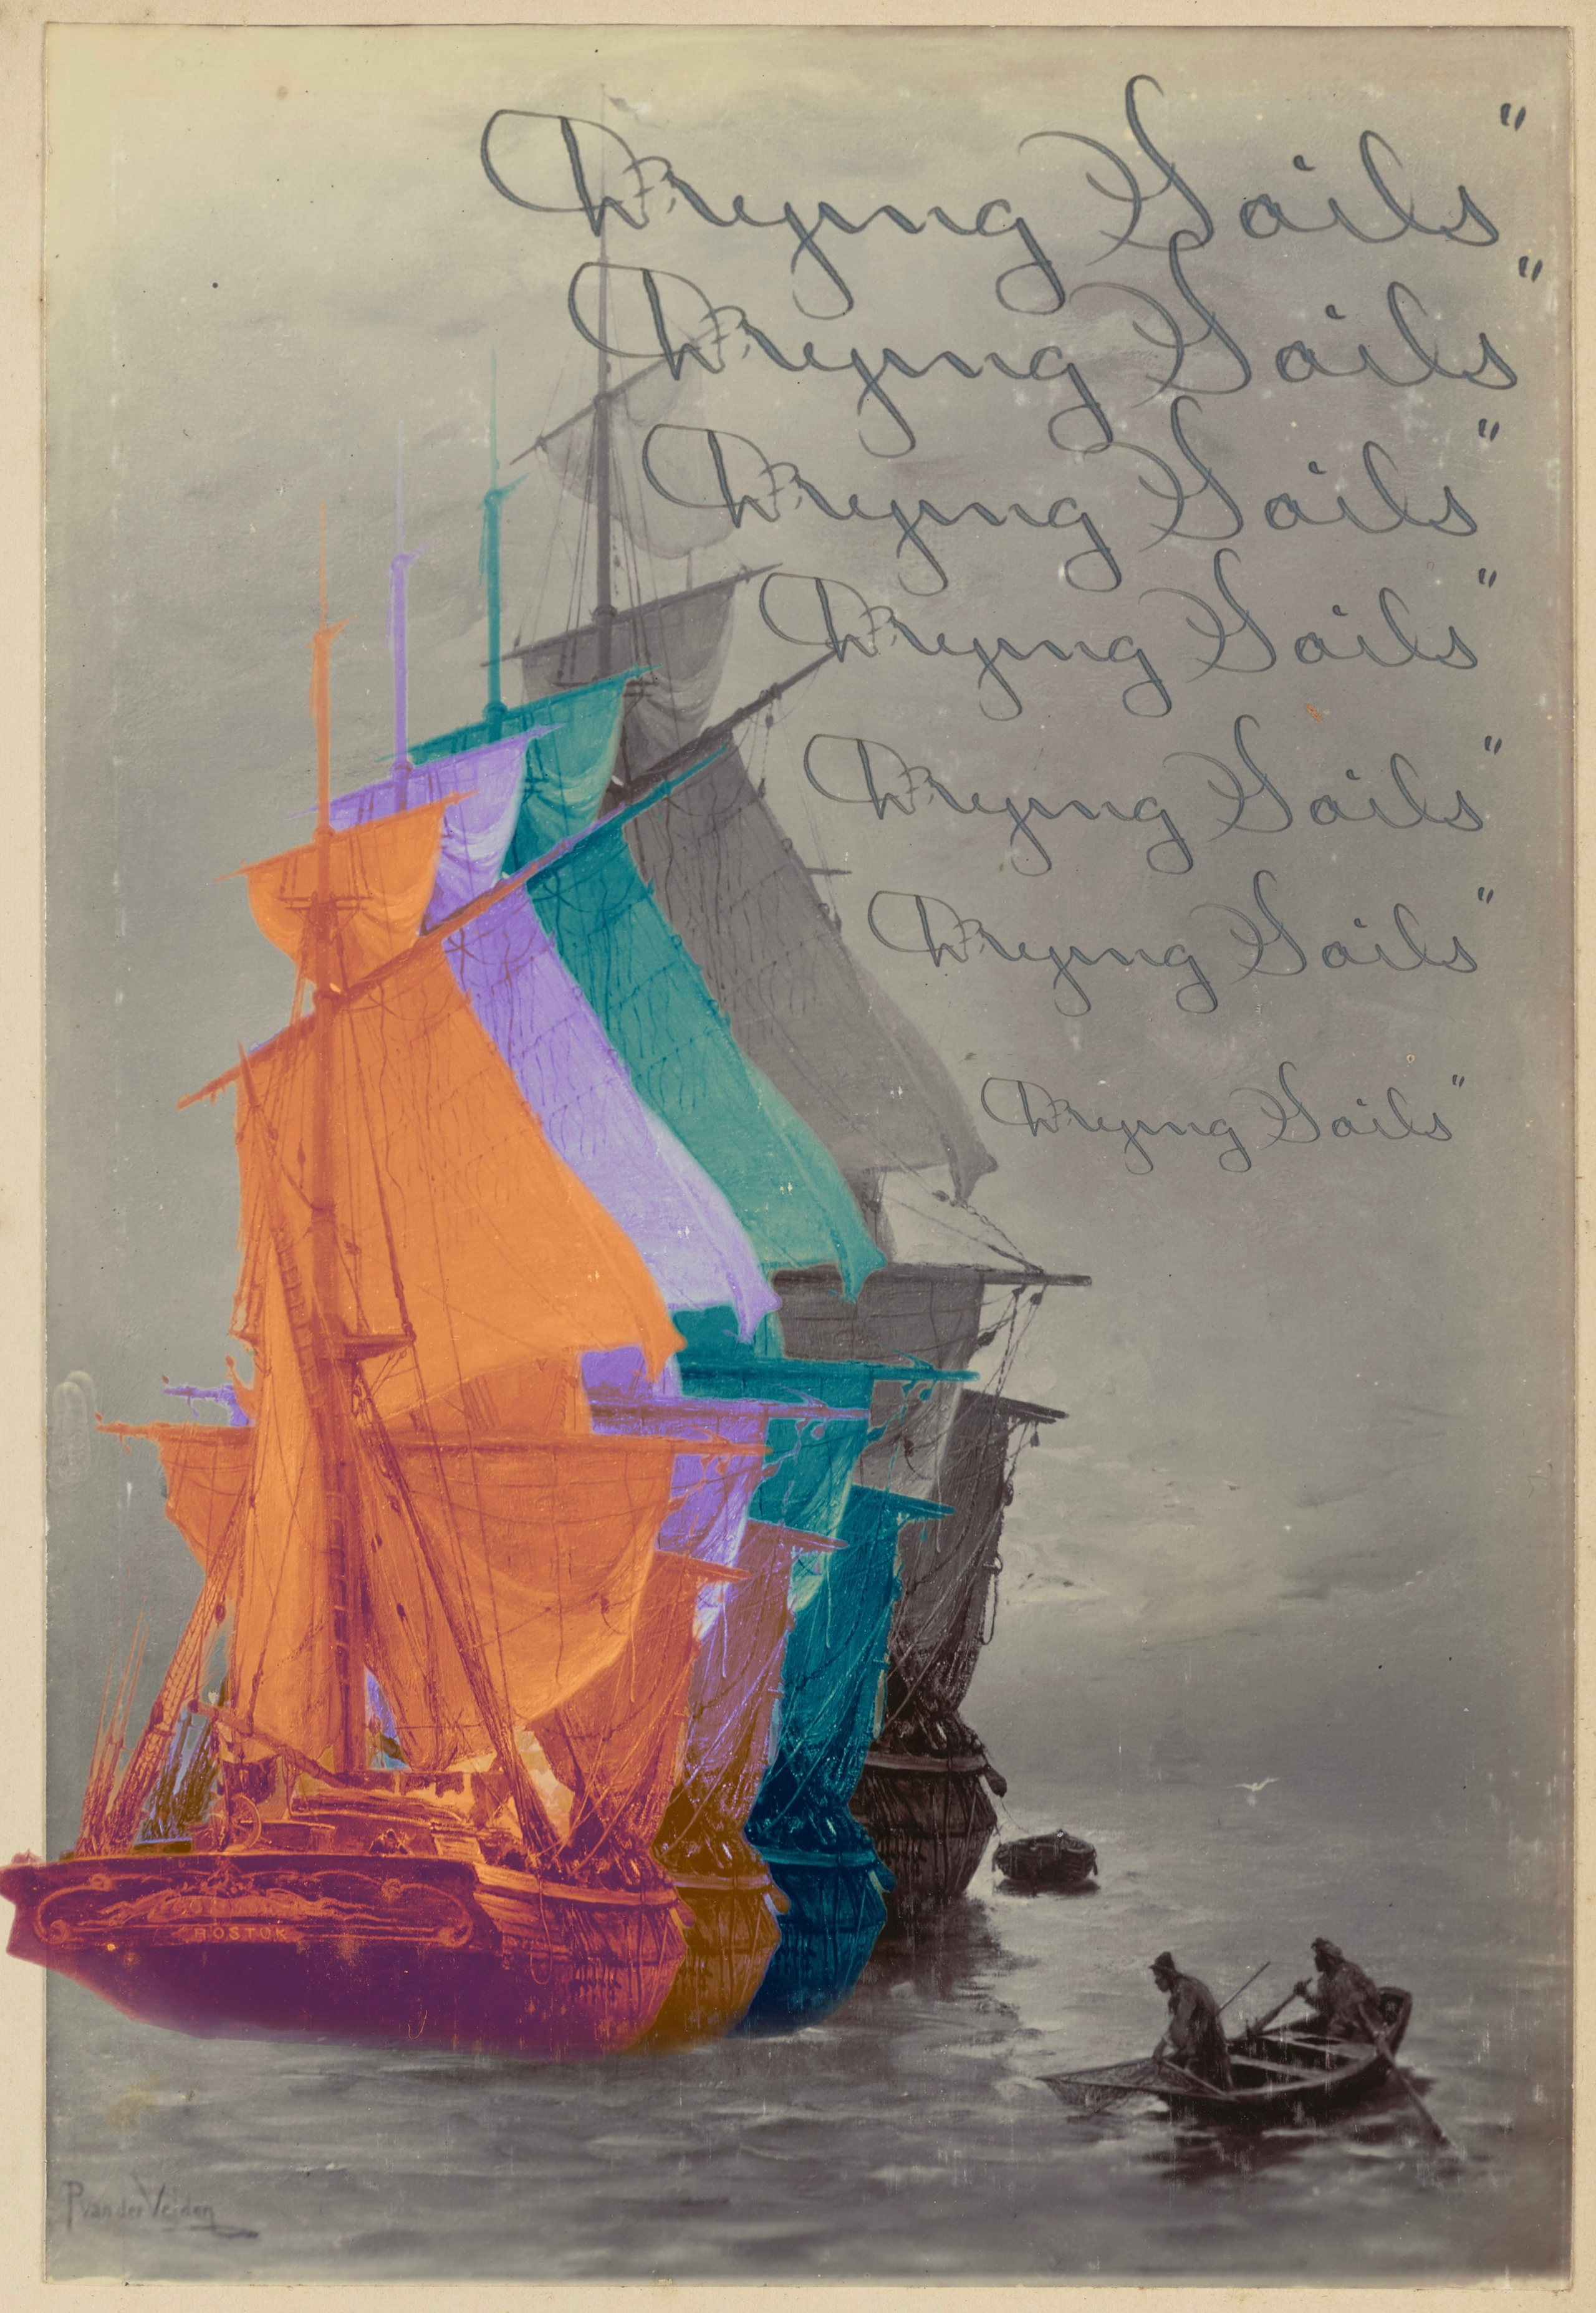 Drying Sails"
Drying Sails"
Drying Sails"
Drying Sails"
Drying Sails"
Drying Sails"
Drying Sails"
ROSTOK
P van der Velden